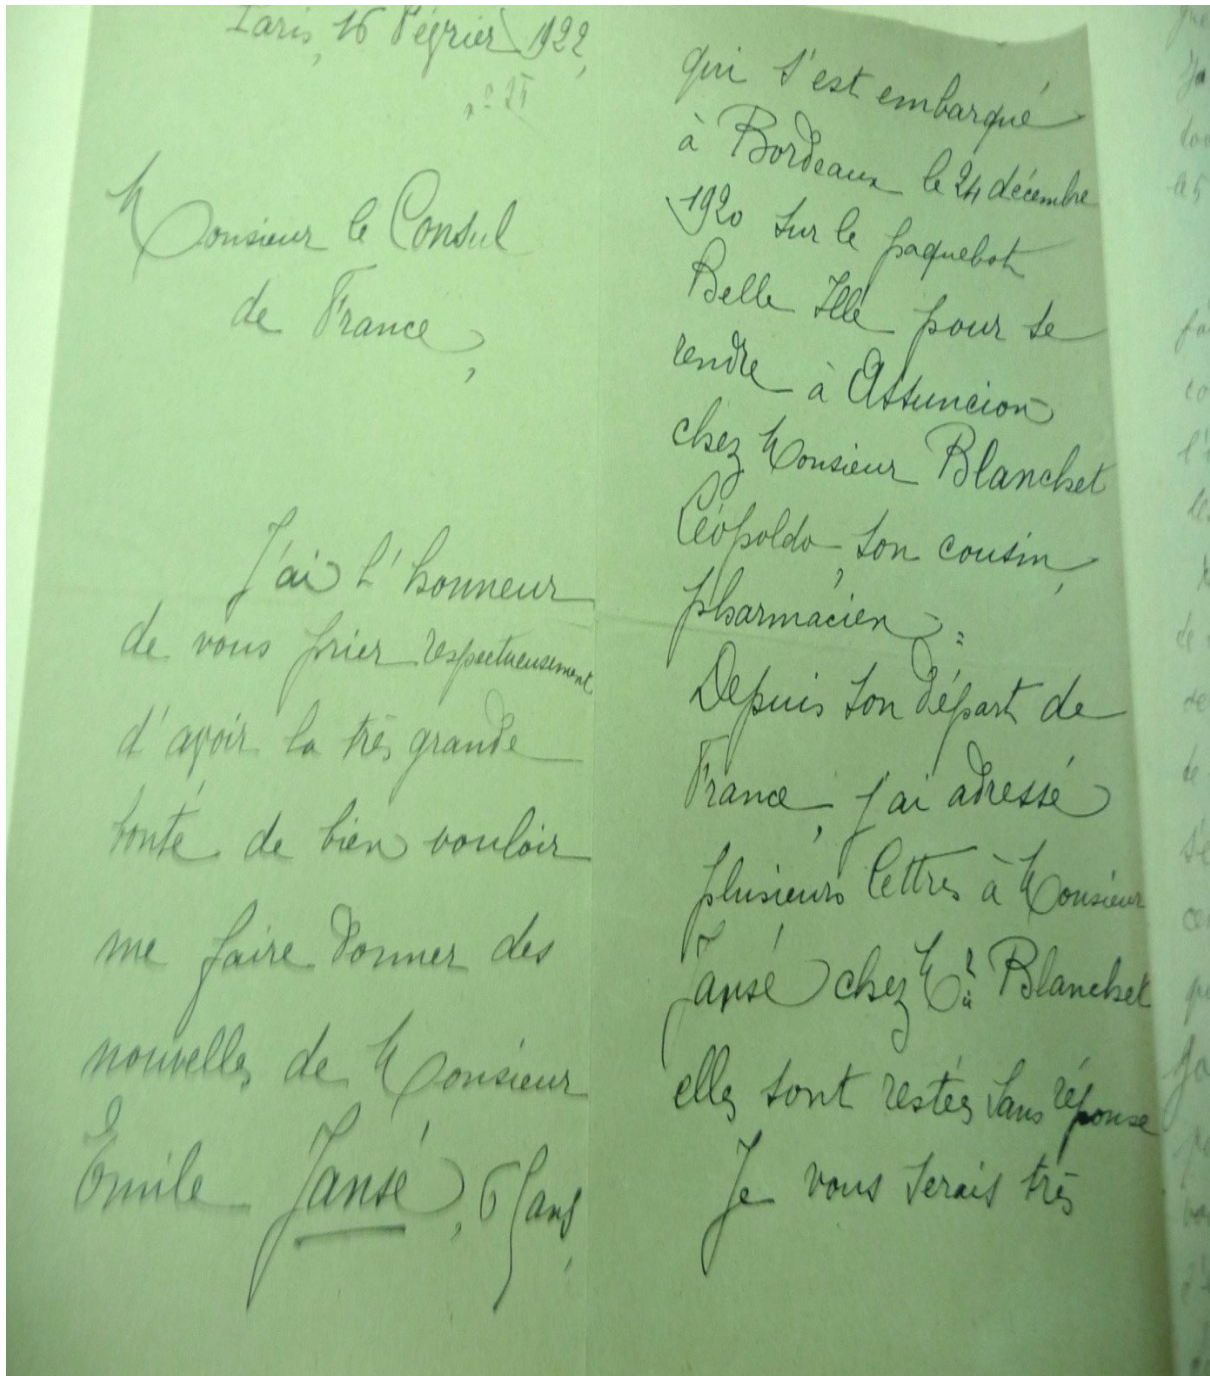 Paris, 16 Février 1922,
n° 25
Monsieur le Consul
de France,
J'ai l'honneur
de vous prier respectueusement
d'avoir la très grande
bonté de bien vouloir
me faire donner des
nouvelles de Monsieur
Emile Jansé, 65 ans,
qui s'est embarqué
à Bordeaux le 24 décembre
1920 sur le paquebot
Belle Ille pour se
rendre à Assuncion
chez Monsieur Blanchet
Léopoldo, son cousin,
pharmacien.
Depuis son départ de
France, j'ai adressé
plusieurs lettres à Monsieur
Jansé chez Mr Blanchet
elles sont restées sans réponse
Je vous serais très